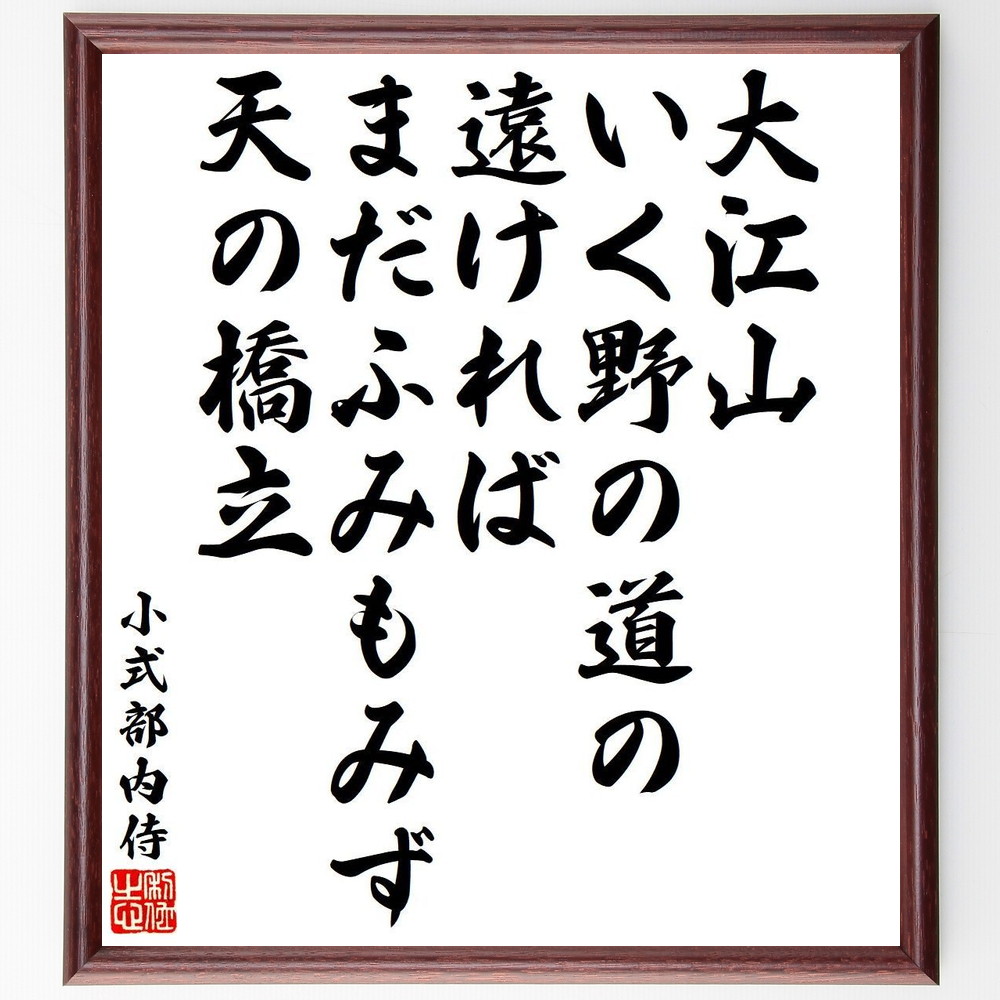 大江山
いく野の道の
遠ければ
まだふみもみず
天の橋立
小式部内侍